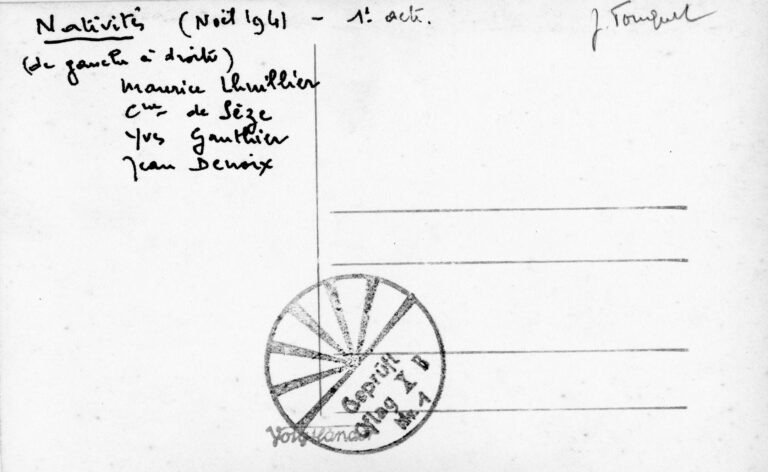 Nativités (Noël 1941 - 1er acte.
J. Touquet
(de gauche à droite)
Maurice Lhuillier
Cne de Sèze
Yves Gauthier
Jean Denoix
Geprüft
Oflag X B
Nr. 1
Voigtländer